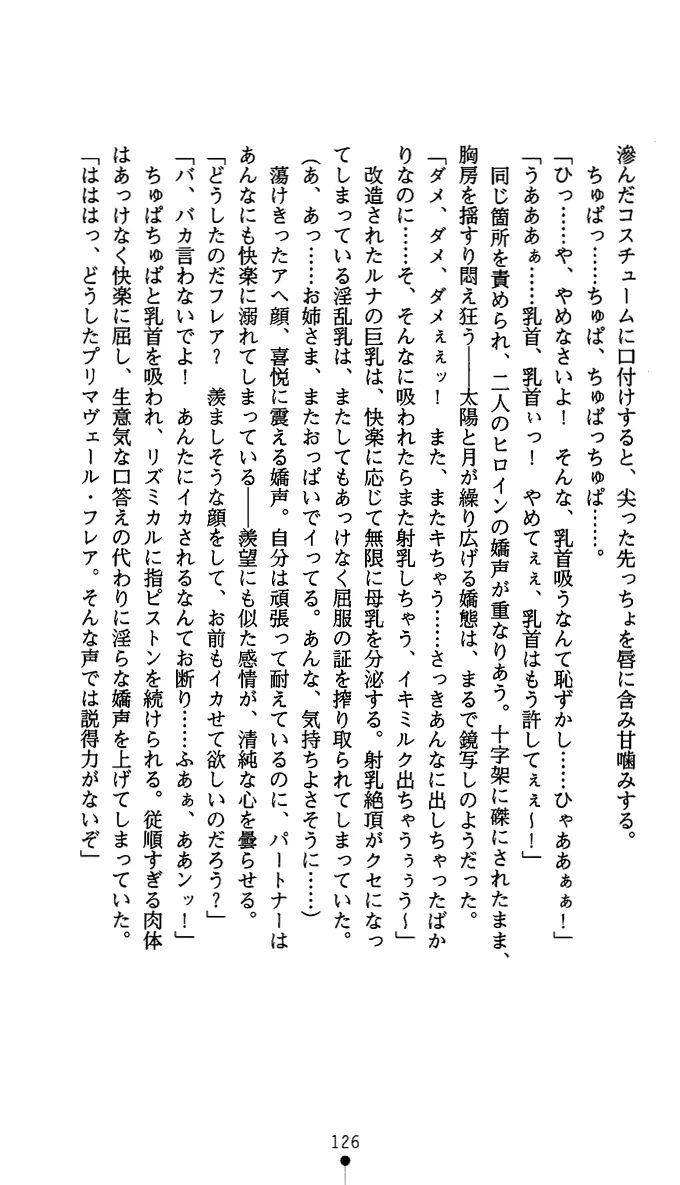 滲んだコスチュームに口付けすると、尖った先っちょを唇に含み甘噛みする。
ちゅぱっ……ちゅぱ、ちゅぱっちゅぱ……。
「ひっ……や、やめなさいよ！　そんな、乳首吸うなんて恥ずかし……ひゃああぁぁ！」
「うあああぁ……乳首、乳首ぃっ！　やめてぇぇ、乳首はもう許してぇぇ～！」
同じ箇所を責められ、二人のヒロインの嬌声が重なりあう。十字架に磔にされたまま、
胸房を揺すり悶え狂う――太陽と月が繰り広げる嬌態は、まるで鏡写しのようだった。
「ダメ、ダメ、ダメぇぇッ！　また、またキちゃう……さっきあんなに出しちゃったばか
りなのに……そ、そんなに吸われたらまた射乳しちゃう、イキミルク出ちゃうぅぅう～」
改造されたルナの巨乳は、快楽に応じて無限に母乳を分泌する。射乳絶頂がクセになっ
てしまっている淫乱乳は、またしてもあっけなく屈服の証を搾り取られてしまっていた。
（あ、あっ……お姉さま、またおっぱいでイってる。あんな、気持ちよさそうに……）
蕩けきったアヘ顔、喜悦に震える嬌声。自分は頑張って耐えているのに、パートナーは
あんなにも快楽に溺れてしまっている――羨望にも似た感情が、清純な心を曇らせる。
「どうしたのだフレア？　羨ましそうな顔をして、お前もイカせて欲しいのだろう？」
「バ、バカ言わないでよ！　あんたにイカされるなんてお断り……ふあぁ、ああンッ！」
ちゅぱちゅぱと乳首を吸われ、リズミカルに指ピストンを続けられる。従順すぎる肉体
はあっけなく快楽に屈し、生意気な口答えの代わりに淫らな嬌声を上げてしまっていた。
「はははっ、どうしたプリマヴェール・フレア。そんな声では説得力がないぞ」
126